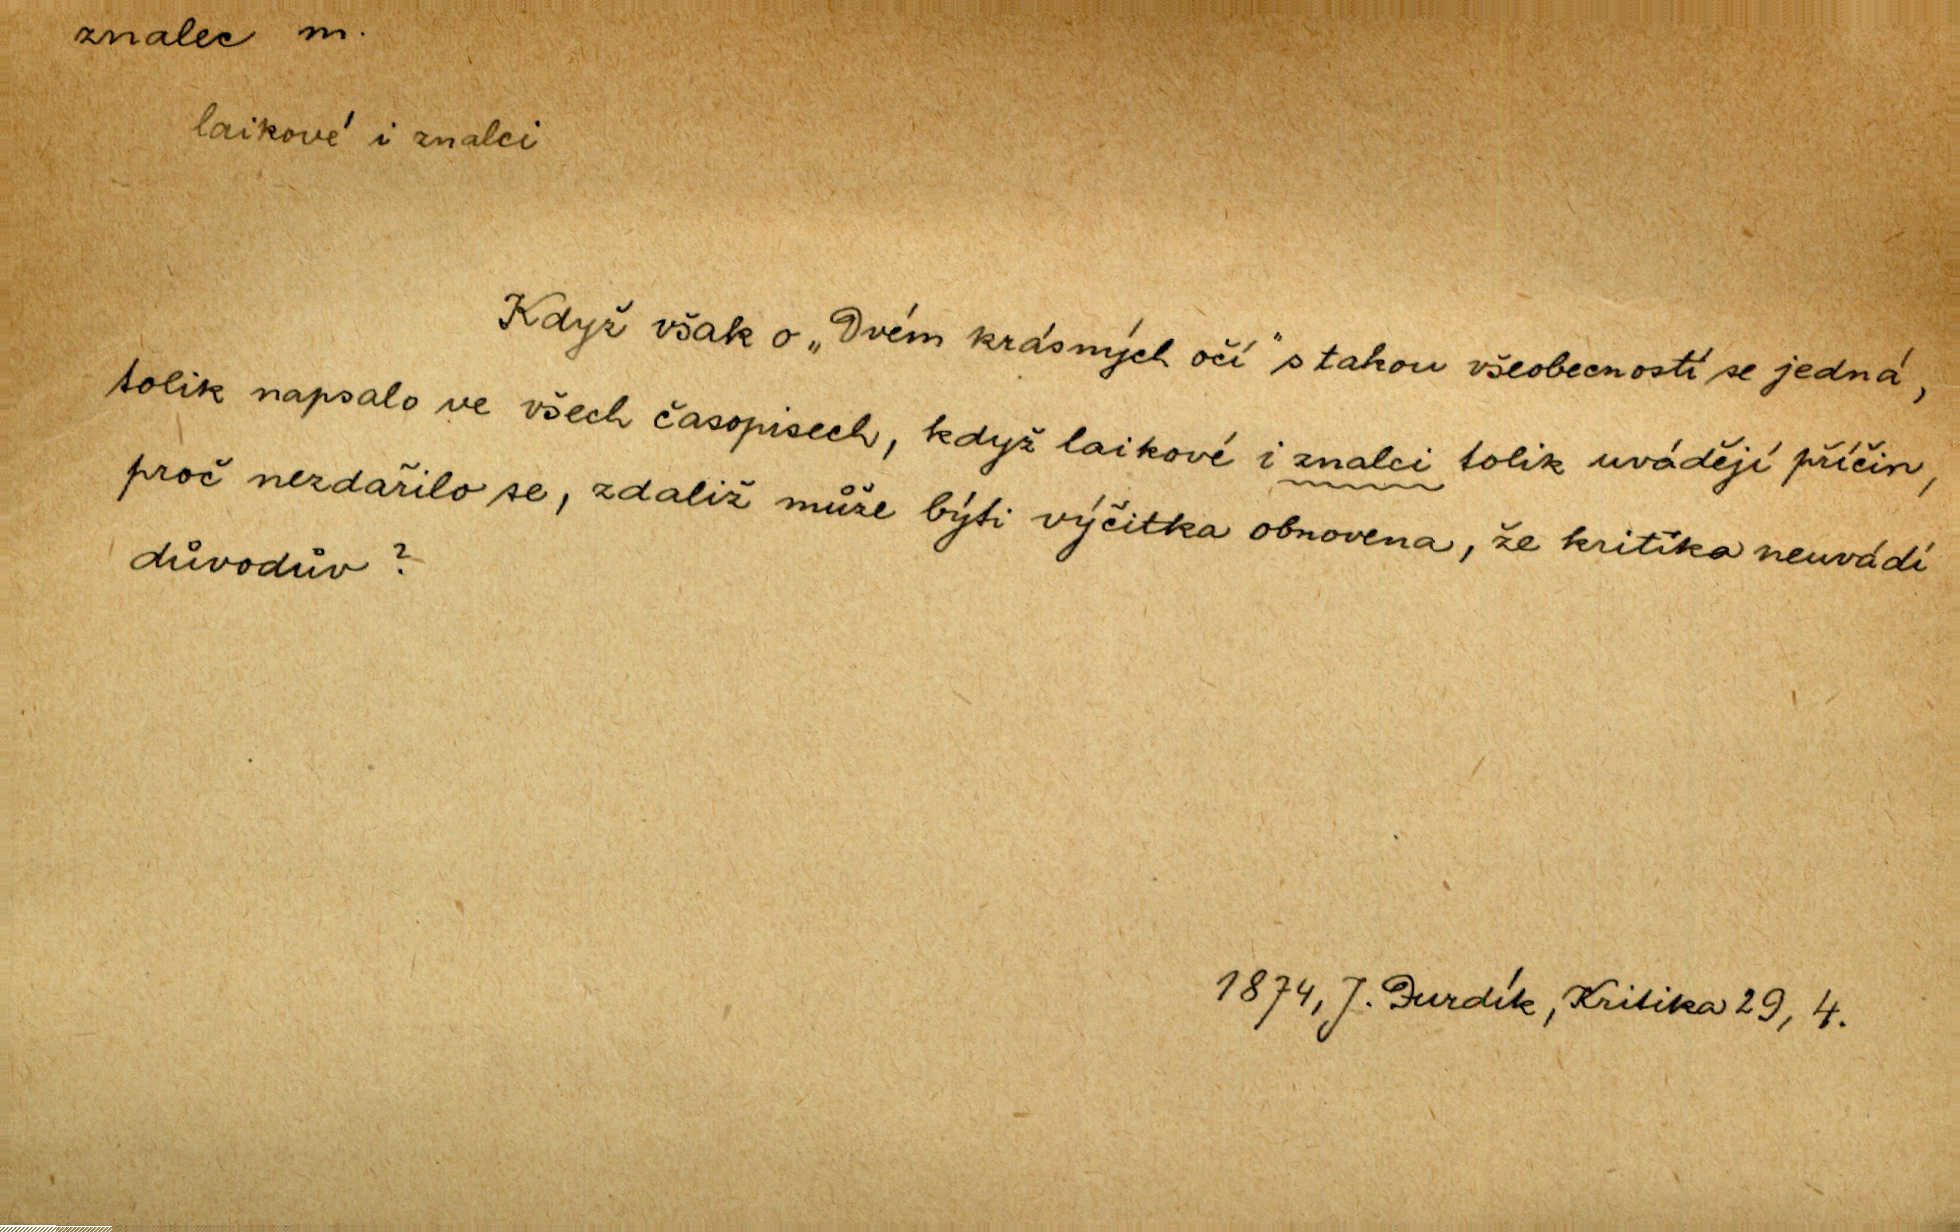 znalec m.
laikové i znalci
Když však o „Dvém krásných očí" s takou všeobecností se jedná,
tolik napsalo ve všech časopisech, když laikové i znalci tolik uvádějí příčin,
proč nezdařilo se, zdaliž může býti výčitka obnovena, že kritika neuvádí
důvodův?
1874, J. Durdík, Kritika 29, 4.